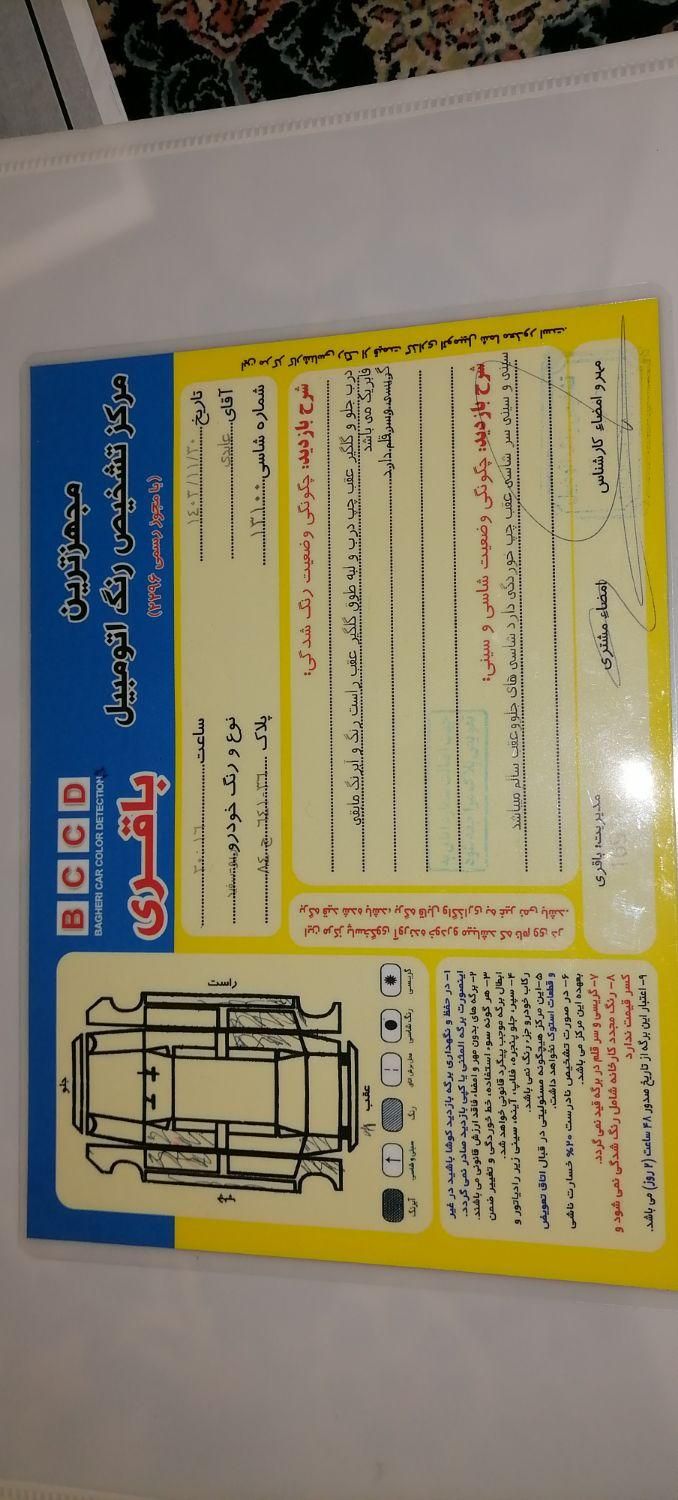 مجهزترین
مرکز تشخیص رنگ اتومبیل
(با مجوز رسمی ۲۲۹۶)
BCCD
BAGHERI CAR COLOR DETECTION
باقـری
تاریخ ۱۴۰۳/۱۱/۳۰
ساعت ۲۰:۱۶
آقای عابدی
نوع و رنگ خودرو
شماره شاسی ۱۳۱۰۰
پلاک
شرح بازدید: چگونگی وضعیت رنگ شدگی:
درب جلو و گلگیر عقب چپ درب و لبه طوق گلگیر عقب راست رنگ و آبرنگ مابقی
فابریک می باشد
گریسی و سرقلم دارد
شرح بازدید: چگونگی وضعیت شاسی و سینی:
سینی و سینی سر شاسی عقب چپ خوردگی دارد شاسی های جلو و عقب سالم میباشد
مهر و امضاء کارشناس
امضاء مشتری
مدیریت: باقری
این مرکز کارشناسی رنگ از قیمت گذاری اتومبیل شما معذور است.
این مرکز پاسخگوی آورنده خودرو میباشد که نام وی در
برگه قید شده باشد، برگه قابل واگذاری به غیر نمی باشد.
جلو
راست
عقب
گریسی
رنگ شاسی
محل برش اتاق
رنگ
سینی و شاسی
آبرنگ
۱- در حفظ و نگهداری برگه بازدید کوشا باشید در غیر
اینصورت برگه المثنی یا کپی بازدید صادر نمی گردد.
۲- برگه های بدون مهر و امضا، فاقد ارزش قانونی می باشند.
۳- هر گونه سوء استفاده، خط خوردگی و تغییر ضمن
ابطال برگه موجب پیگرد قانونی خواهد شد.
۴- سپر، جلو پنجره، فلاپ، آینه، سینی زیر رادیاتور و
رکاب خودرو جزء رنگ نمی باشد.
۵-این مرکز هیچگونه مسئولیتی در قبال اتاق تعویض
و قطعات استوک نخواهد داشت.
۶- در صورت تشخیص نادرست ۲۰% خسارت ناشی
بعهده این مرکز می باشد.
۷- گریسی و سر قلم در برگه قید نمی گردد.
۸- رنگ مجدد کارخانه شامل رنگ شدگی نمی شود و
کسر قیمت ندارد
۹- اعتبار این برگه از تاریخ صدور ۴۸ ساعت (۲ روز) می باشد.